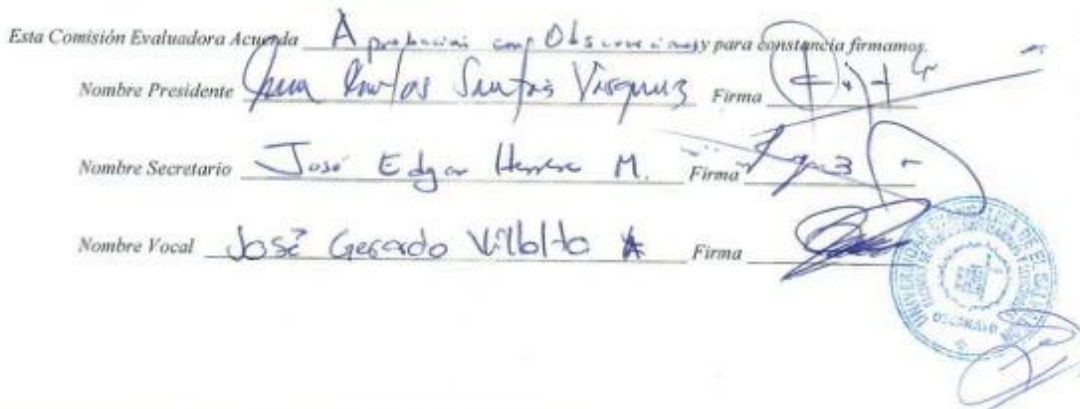 Esta Comisión Evaluadora Acuerda Aprobación con Observaciones y para constancia firmamos.
Nombre Presidente Juan Carlos Santos Vásquez Firma
Nombre Secretario José Edgar Herrera M. Firma
Nombre Vocal José Gerardo Villalta A Firma
UNIVERSIDAD DE EL
DECANATO